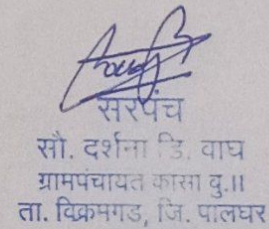 सरपंच
सौ. दर्शना डि. वाघ
ग्रामपंचायत कासा बु.॥
ता. विक्रमगड, जि. पालघर